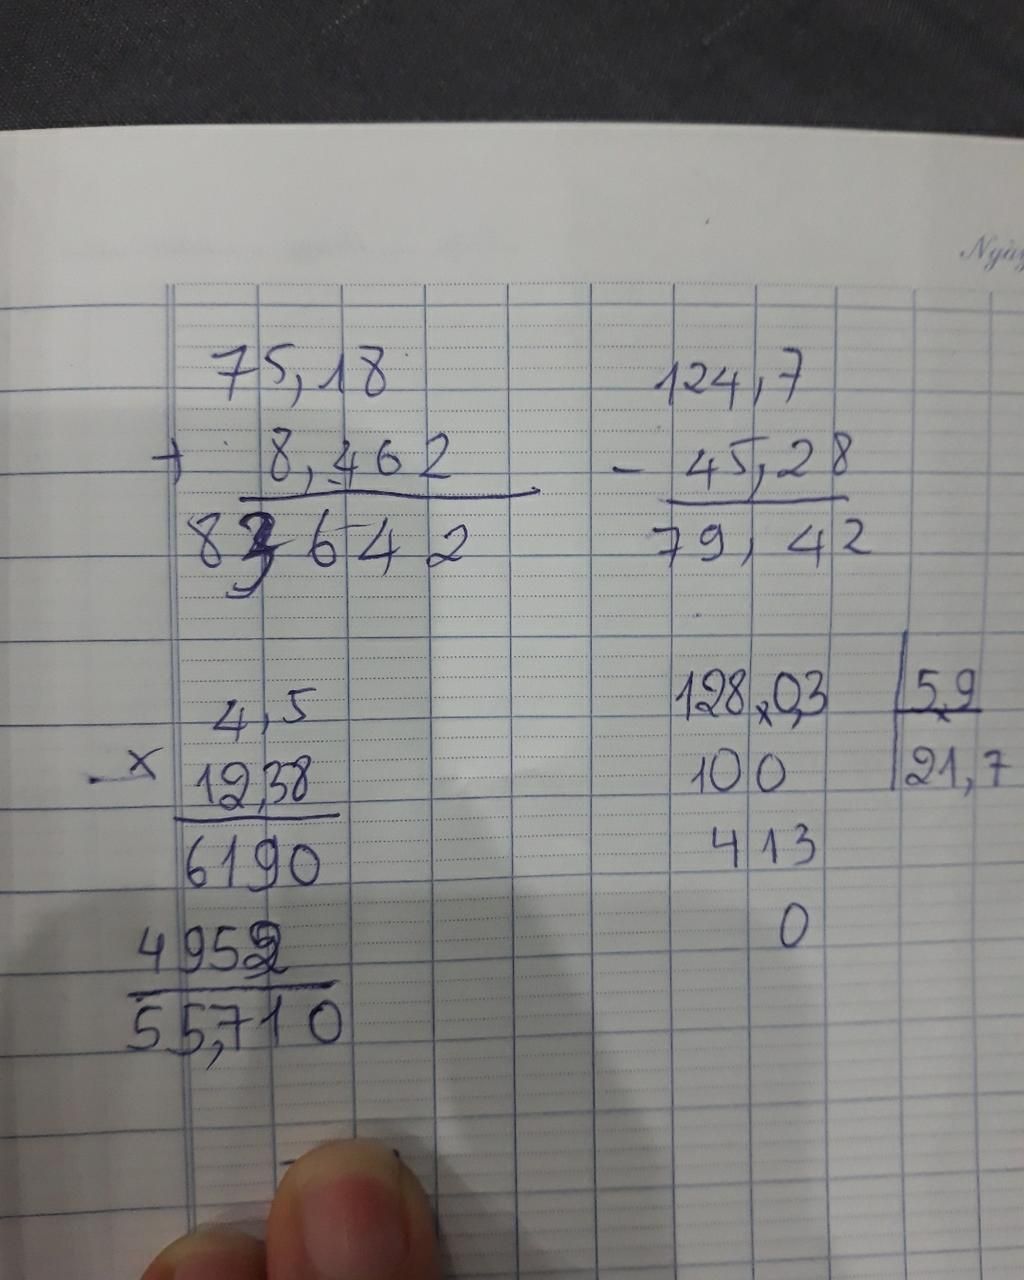 75,18
+ 8,462
83,642
124,7
- 45,28
79,42
4,5
x 12,38
6190
4952
55,710
128,0,3 5,9
100 21,7
413
0